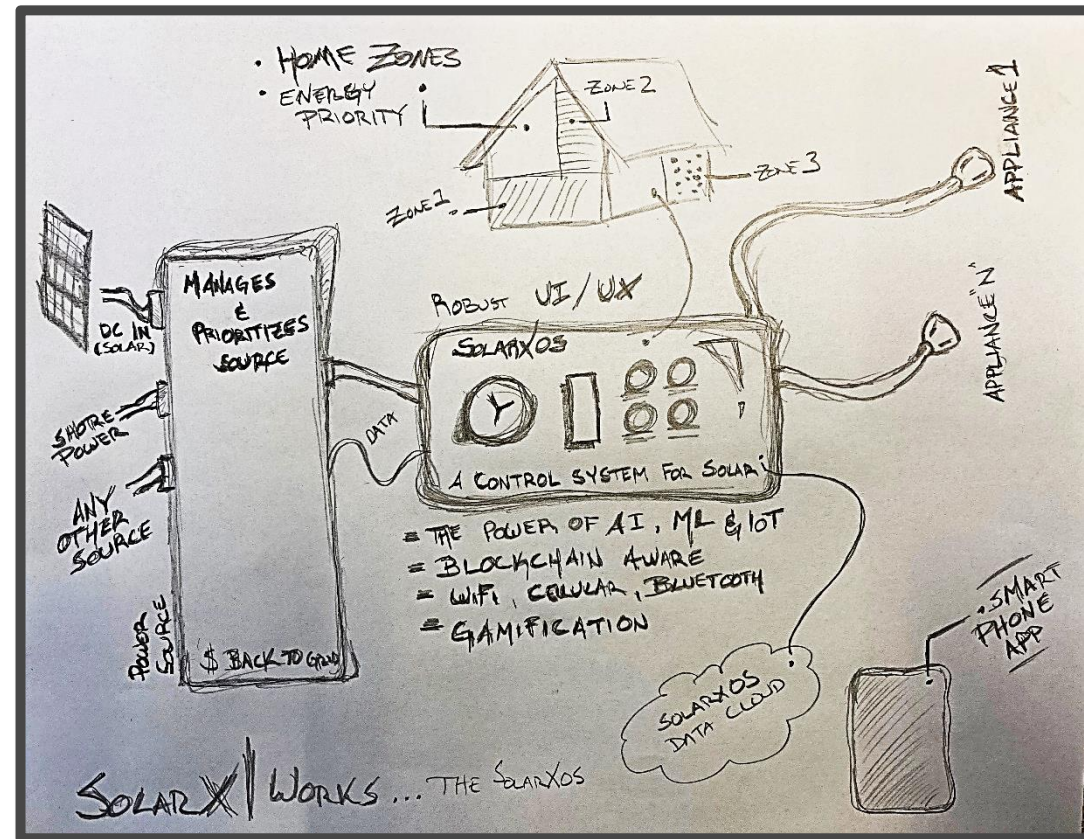 • HOME ZONES
• ENERGY
PRIORITY
ZONE 2
ZONE 1
ZONE 3
APPLIANCE 1
MANAGES
&
PRIORITIZES
SOURCE
DC IN
(SOLAR)
SHORE
POWER
ANY
OTHER
SOURCE
POWER
SOURCE
$ BACK TO GRID
DATA
ROBUST UI/UX
SOLARXOS
A CONTROL SYSTEM FOR SOLAR
APPLIANCE "N"
= THE POWER OF AI, ML & IOT
= BLOCKCHAIN AWARE
= WIFI, CELLULAR, BLUETOOTH
= GAMIFICATION
SOLARXOS
DATA CLOUD
SMART
PHONE
APP
SOLARX | WORKS... THE SOLARXOS